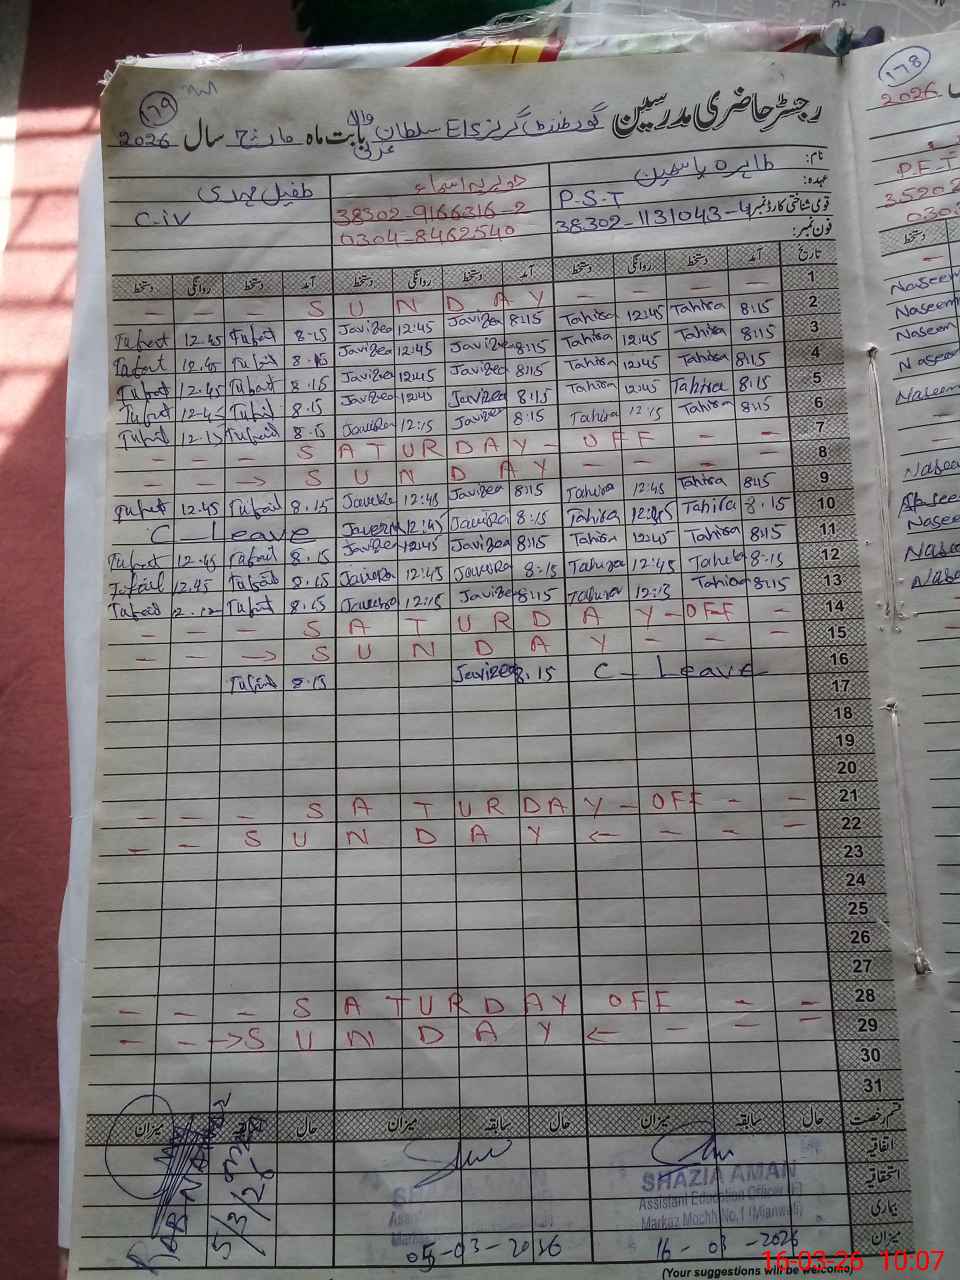 179
رجسٹر حاضری مدرسین گورنمنٹ گرلز E/S سلطان والا بابت ماہ مارچ سال 2026
نام: طاہرہ یاسمین
جویریہ اسماء
طفیل مہدی
عہدہ: P.S.T
C.iV
قومی شناختی کارڈ نمبر 38302-1131043-4
38302-9166316-2
فون نمبر:
0304-8462540
تاریخ آمد دستخط روانگی دستخط آمد دستخط روانگی دستخط آمد دستخط روانگی دستخط
1 - - - SUNDAY - - -
2 8:15 Tahira 12:45 Tahira 8:15 Javizea 12:45 Javizea 8:15 Tufail 12.45 Tufail
3 8:15 Tahira 12:45 Tahira 8:15 Javizea 12:45 Javizea 8:15 Tufail 12.45 Tufail
4 8:15 Tahira 12:45 Tahira 8:15 Javizea 12:45 Javizea 8:15 Tufail 12.45 Tufail
5 8:15 Tahira 12:45 Tahira 8:15 Javizea 12:45 Javizea 8.15 Tufail 12.45 Tufail
6 8:15 Tahira 12:15 Tahira 8:15 Javizea 12:15 Javizea 8.15 Tufail 12.15 Tufail
7 - - - SATURDAY - OFF - -
8 - - → SUNDAY - - - -
9 8:15 Tahira 12:45 Tahira 8:15 Javizea 12:45 Javizea 8.15 Tufail 12.45 Tufail
10 8:15 Tahira 12:45 Tahira 8:15 Javizea 12:45 Javizea C-Leave
11 8:15 Tahira 12:45 Tahira 8:15 Javizea 12:45 Javizea 8.15 Tufail 12.45 Tufail
12 8:15 Tahira 12:45 Tahira 8:15 Javizea 12:45 Javizea 8.15 Tufail 12.45 Tufail
13 8:15 Tahira 12:15 Tahira 8:15 Javizea 12:15 Javizea 8.15 Tufail Tufail
14 - - - SATURDAY-OFF - -
15 - - → SUNDAY - - - -
16 C-Leave 8.15 Javizea 8.15 Tufail
17
18
19
20
21 - - - SATURDAY - OFF - -
22 - - SUNDAY ← - - -
23
24
25
26
27
28 - - - SATURDAY OFF - -
29 - - → SUNDAY ← - - -
30
31
قسم رخصت حال سابقہ میزان حال سابقہ میزان حال میزان
اتفاقیہ
استحقاقیہ
بیماری
میزان
SHAZIA AMAN
Assistant Education Officer
Markaz Mochh No.1 (Mianwali)
16-03-2026
05-03-2026
5/3/26
(Your suggestions will be welcome)
178
2026
P.E.T
دستخط
Naseem
Naseem
Naseem
Naseem
Naseem
16-03-26 10:07